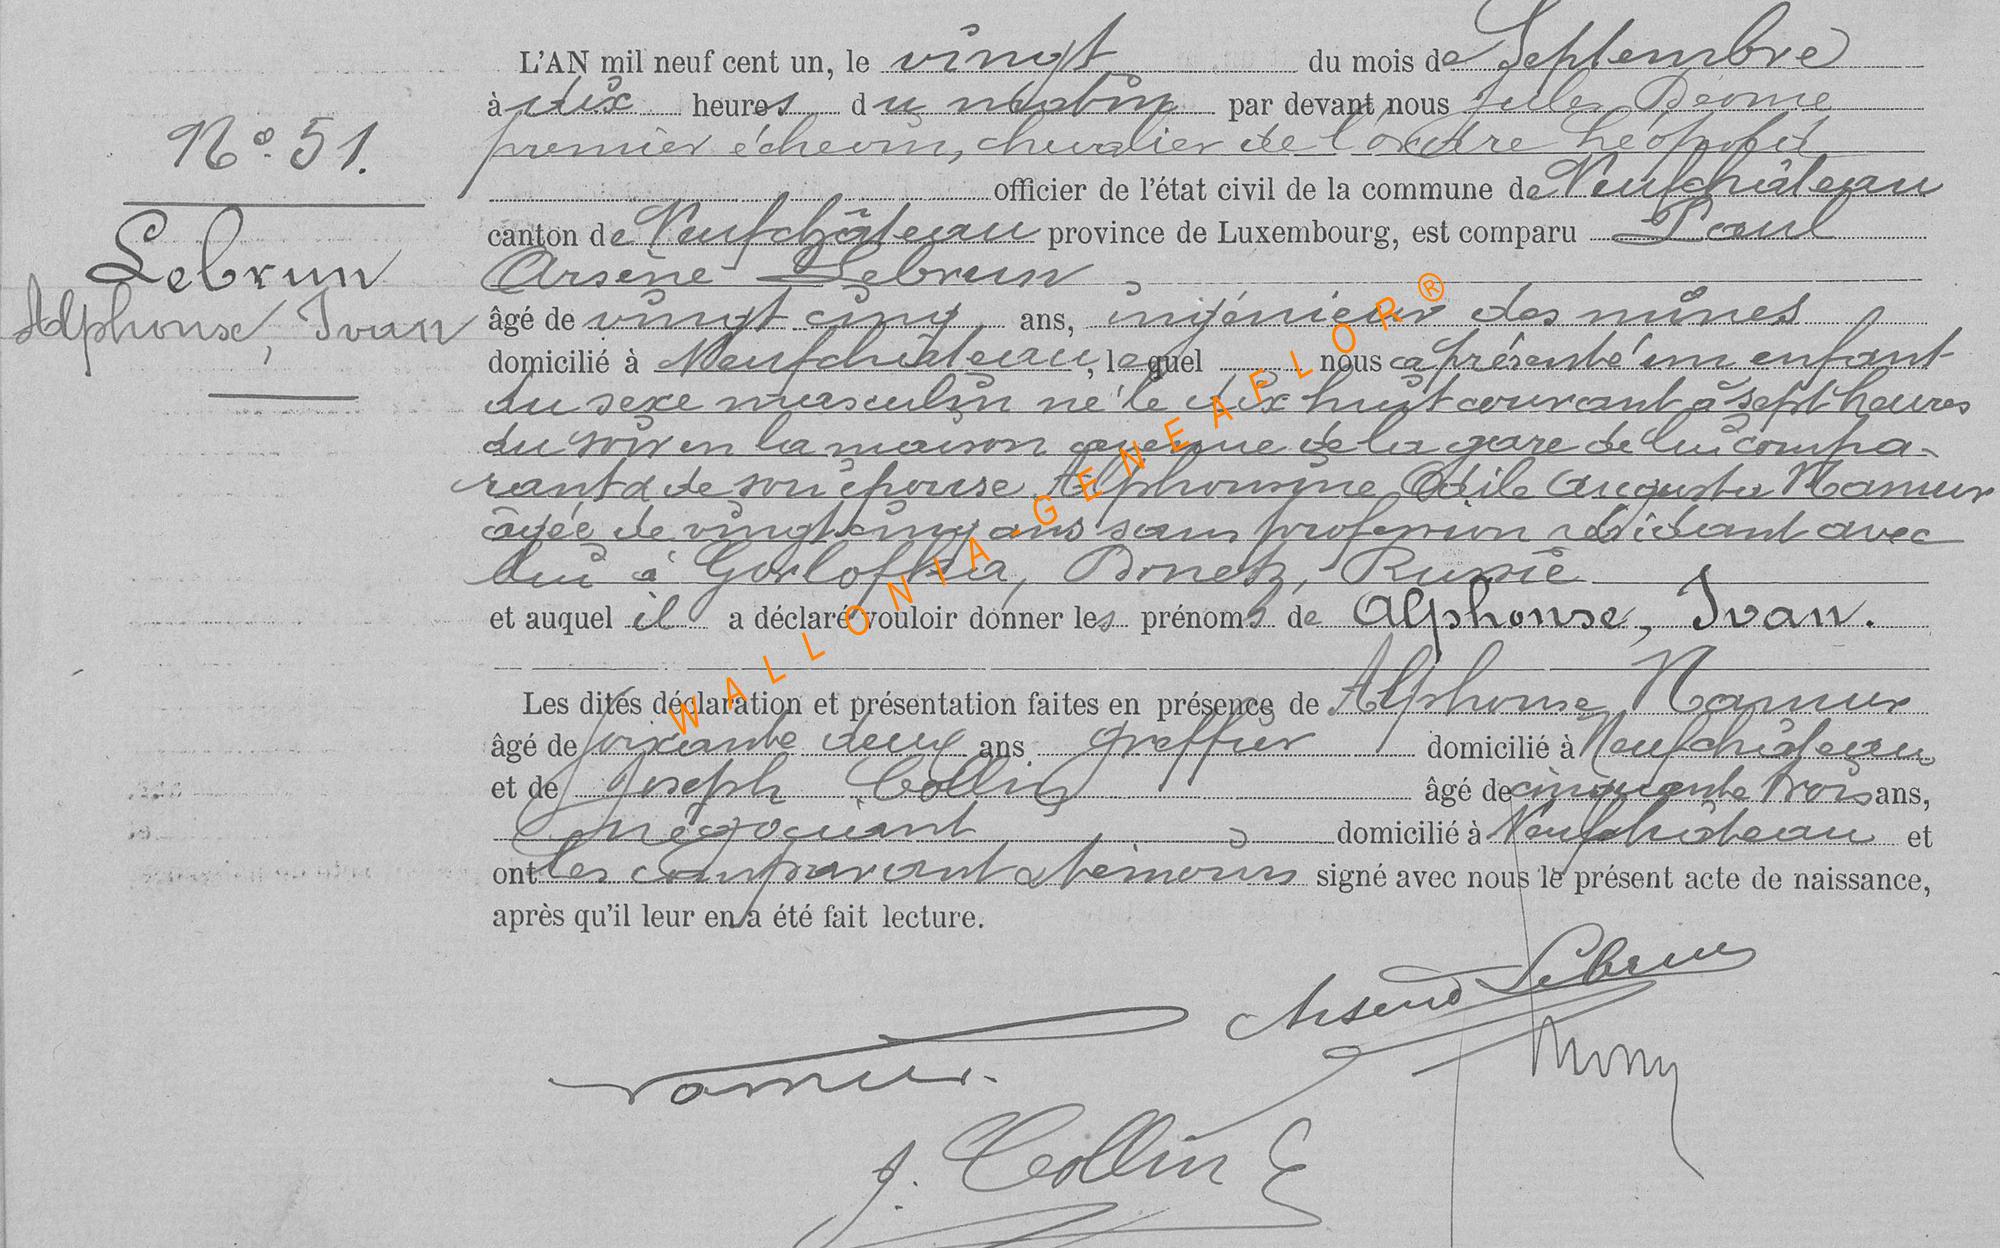 N° 51.
Lebrun
Alphonse, Ivan
L'AN mil neuf cent un, le vingt du mois de Septembre
à dix heures du matin par devant nous Jules
premier échevin, chevalier de l'ordre Léopold
officier de l'état civil de la commune de Neufchâteau
canton de Neufchâteau province de Luxembourg, est comparu Paul
Arsène Lebrun
âgé de vingt cinq ans, ingénieur des mines
domicilié à Neufchâteau, lequel nous a présenté un enfant
du sexe masculin né le dix huit courant à sept heures
du soir en la maison avenue de la gare de lui compa-
rant & de son épouse Alphonsine Odile Augusta Namur
âgée de vingt cinq ans sans profession résidant avec
lui à Gorlofka, Donetz, Russie
et auquel il a déclaré vouloir donner les prénoms de Alphonse, Ivan.
Les dites déclaration et présentation faites en présence de Alphonse Namur
âgé de soixante deux ans greffier domicilié à Neufchâteau
et de Joseph Collin âgé de cinquante trois ans,
négociant domicilié à Neufchâteau et
ont les comparant & témoins signé avec nous le présent acte de naissance,
après qu'il leur en a été fait lecture.
Arsène Lebrun
Namur.
J. Collin
WALLONIA-GENEAFLOR®